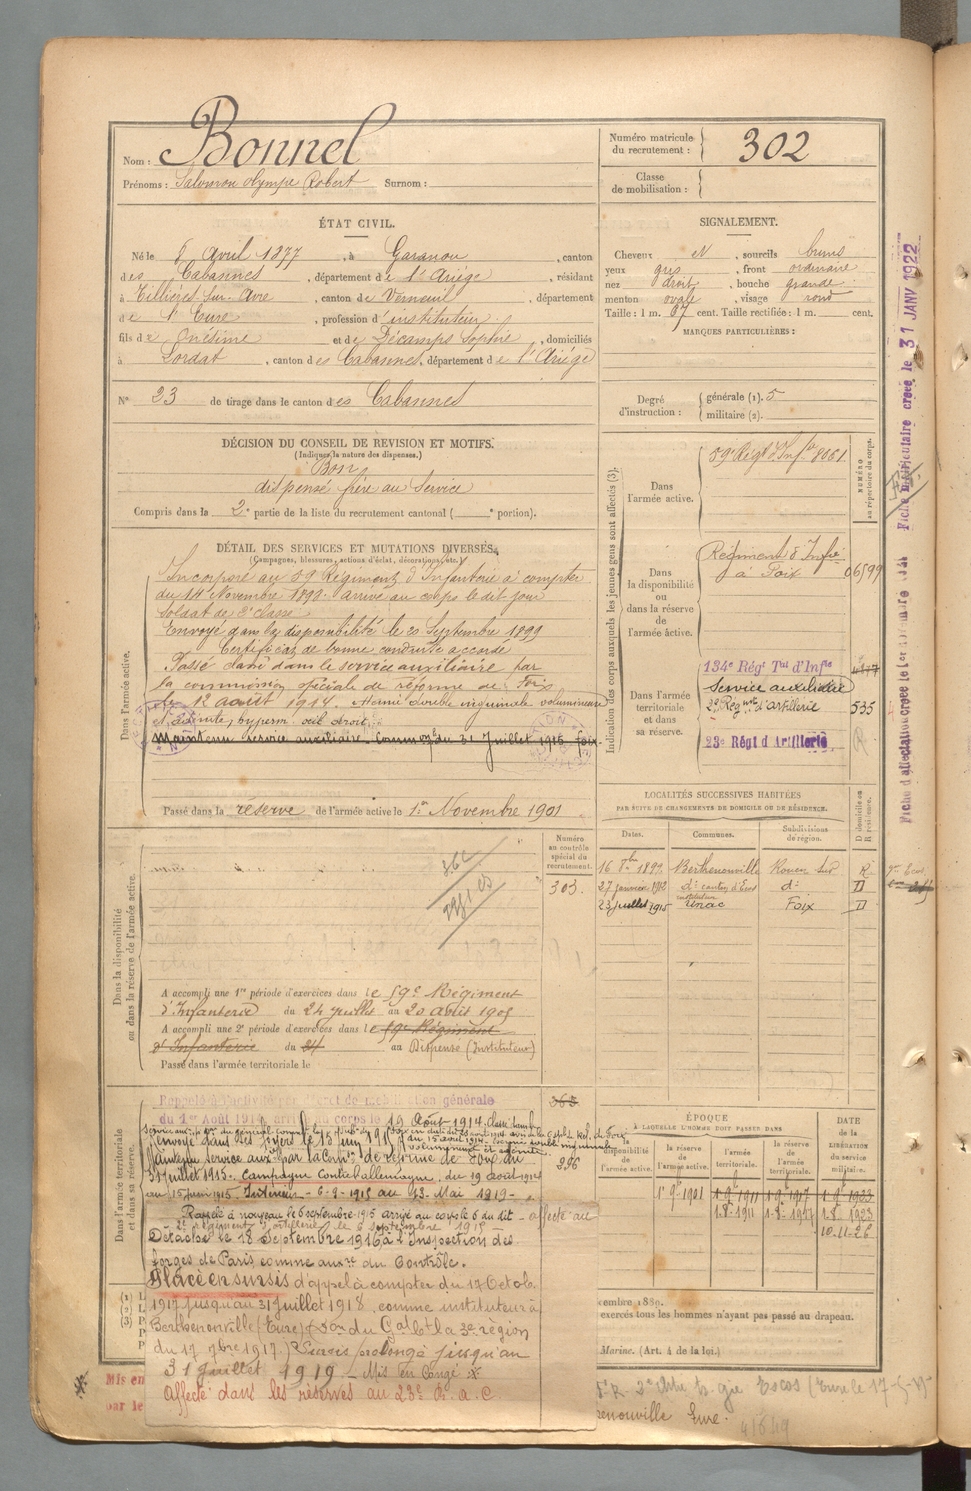 Nom : Bonnel
Prénoms : Olympe Robert Surnom :
Numéro matricule du recrutement : 302
Classe de mobilisation :
ÉTAT CIVIL.
Né le 6 Avril 1877, à Garanou, canton
des Cabannes, département de l'Ariège, résidant
à Tillières-sur-Avre, canton de Verneuil, département
de l'Eure, profession d'instituteur
fils de Onésime et de Décamps Sophie, domiciliés
à Lordat, canton des Cabannes, département de l'Ariège
N° 23 de tirage dans le canton des Cabannes
SIGNALEMENT.
Cheveux N, sourcils bruns
yeux gris, front ordinaire
nez droit, bouche grande
menton ovale, visage rond
Taille : 1 m. 67 cent. Taille rectifiée : 1 m. cent.
MARQUES PARTICULIÈRES :
Degré d'instruction : générale (1). 5
militaire (2).
DÉCISION DU CONSEIL DE RÉVISION ET MOTIFS.
(Indiquer la nature des dispenses.)
Bon
dispensé frère au service
Compris dans la 2e partie de la liste du recrutement cantonal ( e portion).
DÉTAIL DES SERVICES ET MUTATIONS DIVERSES.
(Campagnes, blessures, actions d'éclat, décorations, etc.)
Dans l'armée active.
Incorporé au 59e Régiment d'Infanterie à compter
du 14 Novembre 1898. arrivé au corps le dit jour
soldat de 2e classe
Envoyé dans la disponibilité le 20 Septembre 1899
Certificat de bonne conduite accordé
Passé dans le service auxiliaire par
la commission spéciale de réforme de Foix
le 12 août 1914. Hernie double inguinale volumineuse
œil droit.
Maintenu service auxiliaire. Comm. du 31 Juillet 1915 Foix.
Passé dans la réserve de l'armée active le 1er Novembre 1901
Indication des corps auxquels les jeunes gens sont affectés (3).
NUMÉRO au répertoire du corps.
Dans l'armée active.
59e Régt d'Inf. 8061
Dans la disponibilité ou dans la réserve de l'armée active.
Régiment d'Infie
à Foix 06599
Dans l'armée territoriale et dans sa réserve.
134e Régt Tal d'Infie
Service auxiliaire
d'artillerie 535
23e Régt d'Artillerie
LOCALITÉS SUCCESSIVES HABITÉES
PAR SUITE DE CHANGEMENTS DE DOMICILE OU DE RÉSIDENCE.
Dates. Communes. Subdivisions de région. D domicile ou R résidence.
16 8bre 1899 Berthenonville Rouen Sud R
27 janvier 1912 do canton d'Ecos do D
23 juillet 1915 instituteur Unac Foix D
Numéro au contrôle spécial du recrutement.
303.
Dans la disponibilité ou dans la réserve de l'armée active.
A accompli une 1re période d'exercices dans le 59e Régiment
d'Infanterie du 24 juillet au 20 août 1905
A accompli une 2e période d'exercices dans le 59e Régiment
d'Infanterie du 24 au Dispensé (Instituteur)
Passé dans l'armée territoriale le
Dans l'armée territoriale et dans sa réserve.
Rappelé à l'activité par décret de mobilisation générale
du 1er Août 1914, arrivé au corps le 19 Août 1914.
Maintenu service auxre par la Comon de réforme de Foix du
31 juillet 1915. Campagne Contre l'allemagne, du 19 août 1914
au 15 juin 1915. Intérieur - 6-9-1915 au 13 Mai 1919
Rappelé à nouveau le 6 septembre 1915 arrivé au corps le 6 du dit - affecté au
2e régiment d'artillerie le 6 septembre 1915
Détaché le 18 Septembre 1916 à l'Inspection des
forges de Paris comme auxre du Contrôle.
Placé en sursis d'appel à compter du 17 Octob.
1917 jusqu'au 31 juillet 1918, comme instituteur à
Berthenonville (Eure) (Don du Gal Ct la 3e région
du 17 9bre 1917.) Sursis prolongé jusqu'au
31 juillet 1919 _ Mis en congé
Affecté dans les réserves au 23e R.A.C
363
396
ÉPOQUE
À LAQUELLE L'HOMME DOIT PASSER DANS
disponibilité de l'armée active. la réserve de l'armée active. l'armée territoriale. la réserve de l'armée territoriale.
DATE de la LIBÉRATION du service militaire.
1er 9bre 1901 1-9-1911 1-9-1917 1-9-1923
1-8-1911 1-8-1917 1-8-1923
10-11-26
cembre 1889.
exercés tous les hommes n'ayant pas passé au drapeau.
Marine. (Art. 4 de la loi.)
Mis en
par le
Eure.
Fiche matriculaire créée le 31 JANV 1922